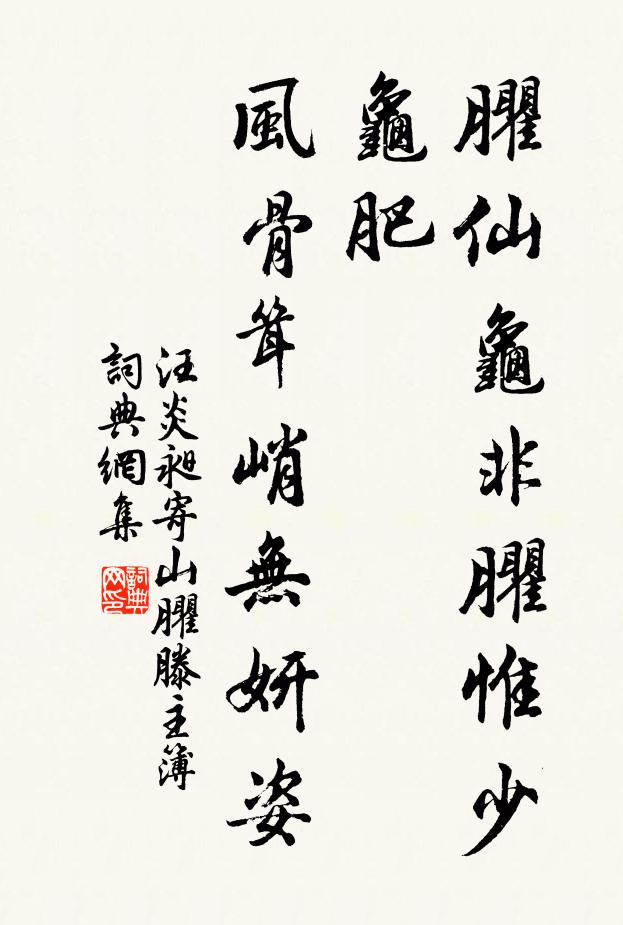 臞仙龜非臞惟少
龜肥
風骨耸峭無妍姿
汪炎昶寄山臞滕主簿
詞典網集
詞典网印